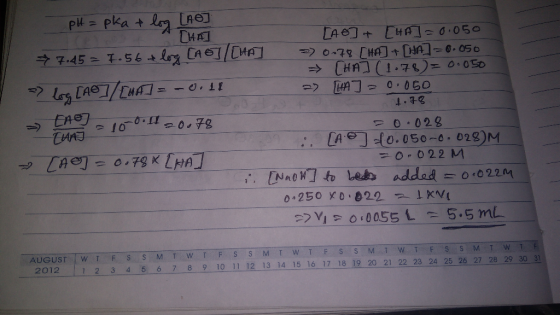 pH = pKa + log [A⊖]/[HA]
⇒ 7.45 = 7.56 + log [A⊖]/[HA]
⇒ log [A⊖]/[HA] = -0.11
⇒ [A⊖]/[HA] = 10^-0.11 = 0.78
⇒ [A⊖] = 0.78 × [HA]
[A⊖] + [HA] = 0.050
⇒ 0.78 [HA] + [HA] = 0.050
⇒ [HA] (1.78) = 0.050
⇒ [HA] = 0.050/1.78
= 0.028
∴ [A⊖] = (0.050 - 0.028) M
= 0.022 M
∴ [NaOH] to be added = 0.022 M
0.250 × 0.022 = 1 × V₁
⇒ V₁ = 0.0055 L = 5.5 mL
AUGUST W T F S S M T W T F S S M T W T F S S M T W T F S S M T W T F
2012 1 2 3 4 5 6 7 8 9 10 11 12 13 14 15 16 17 18 19 20 21 22 23 24 25 26 27 28 29 30 31